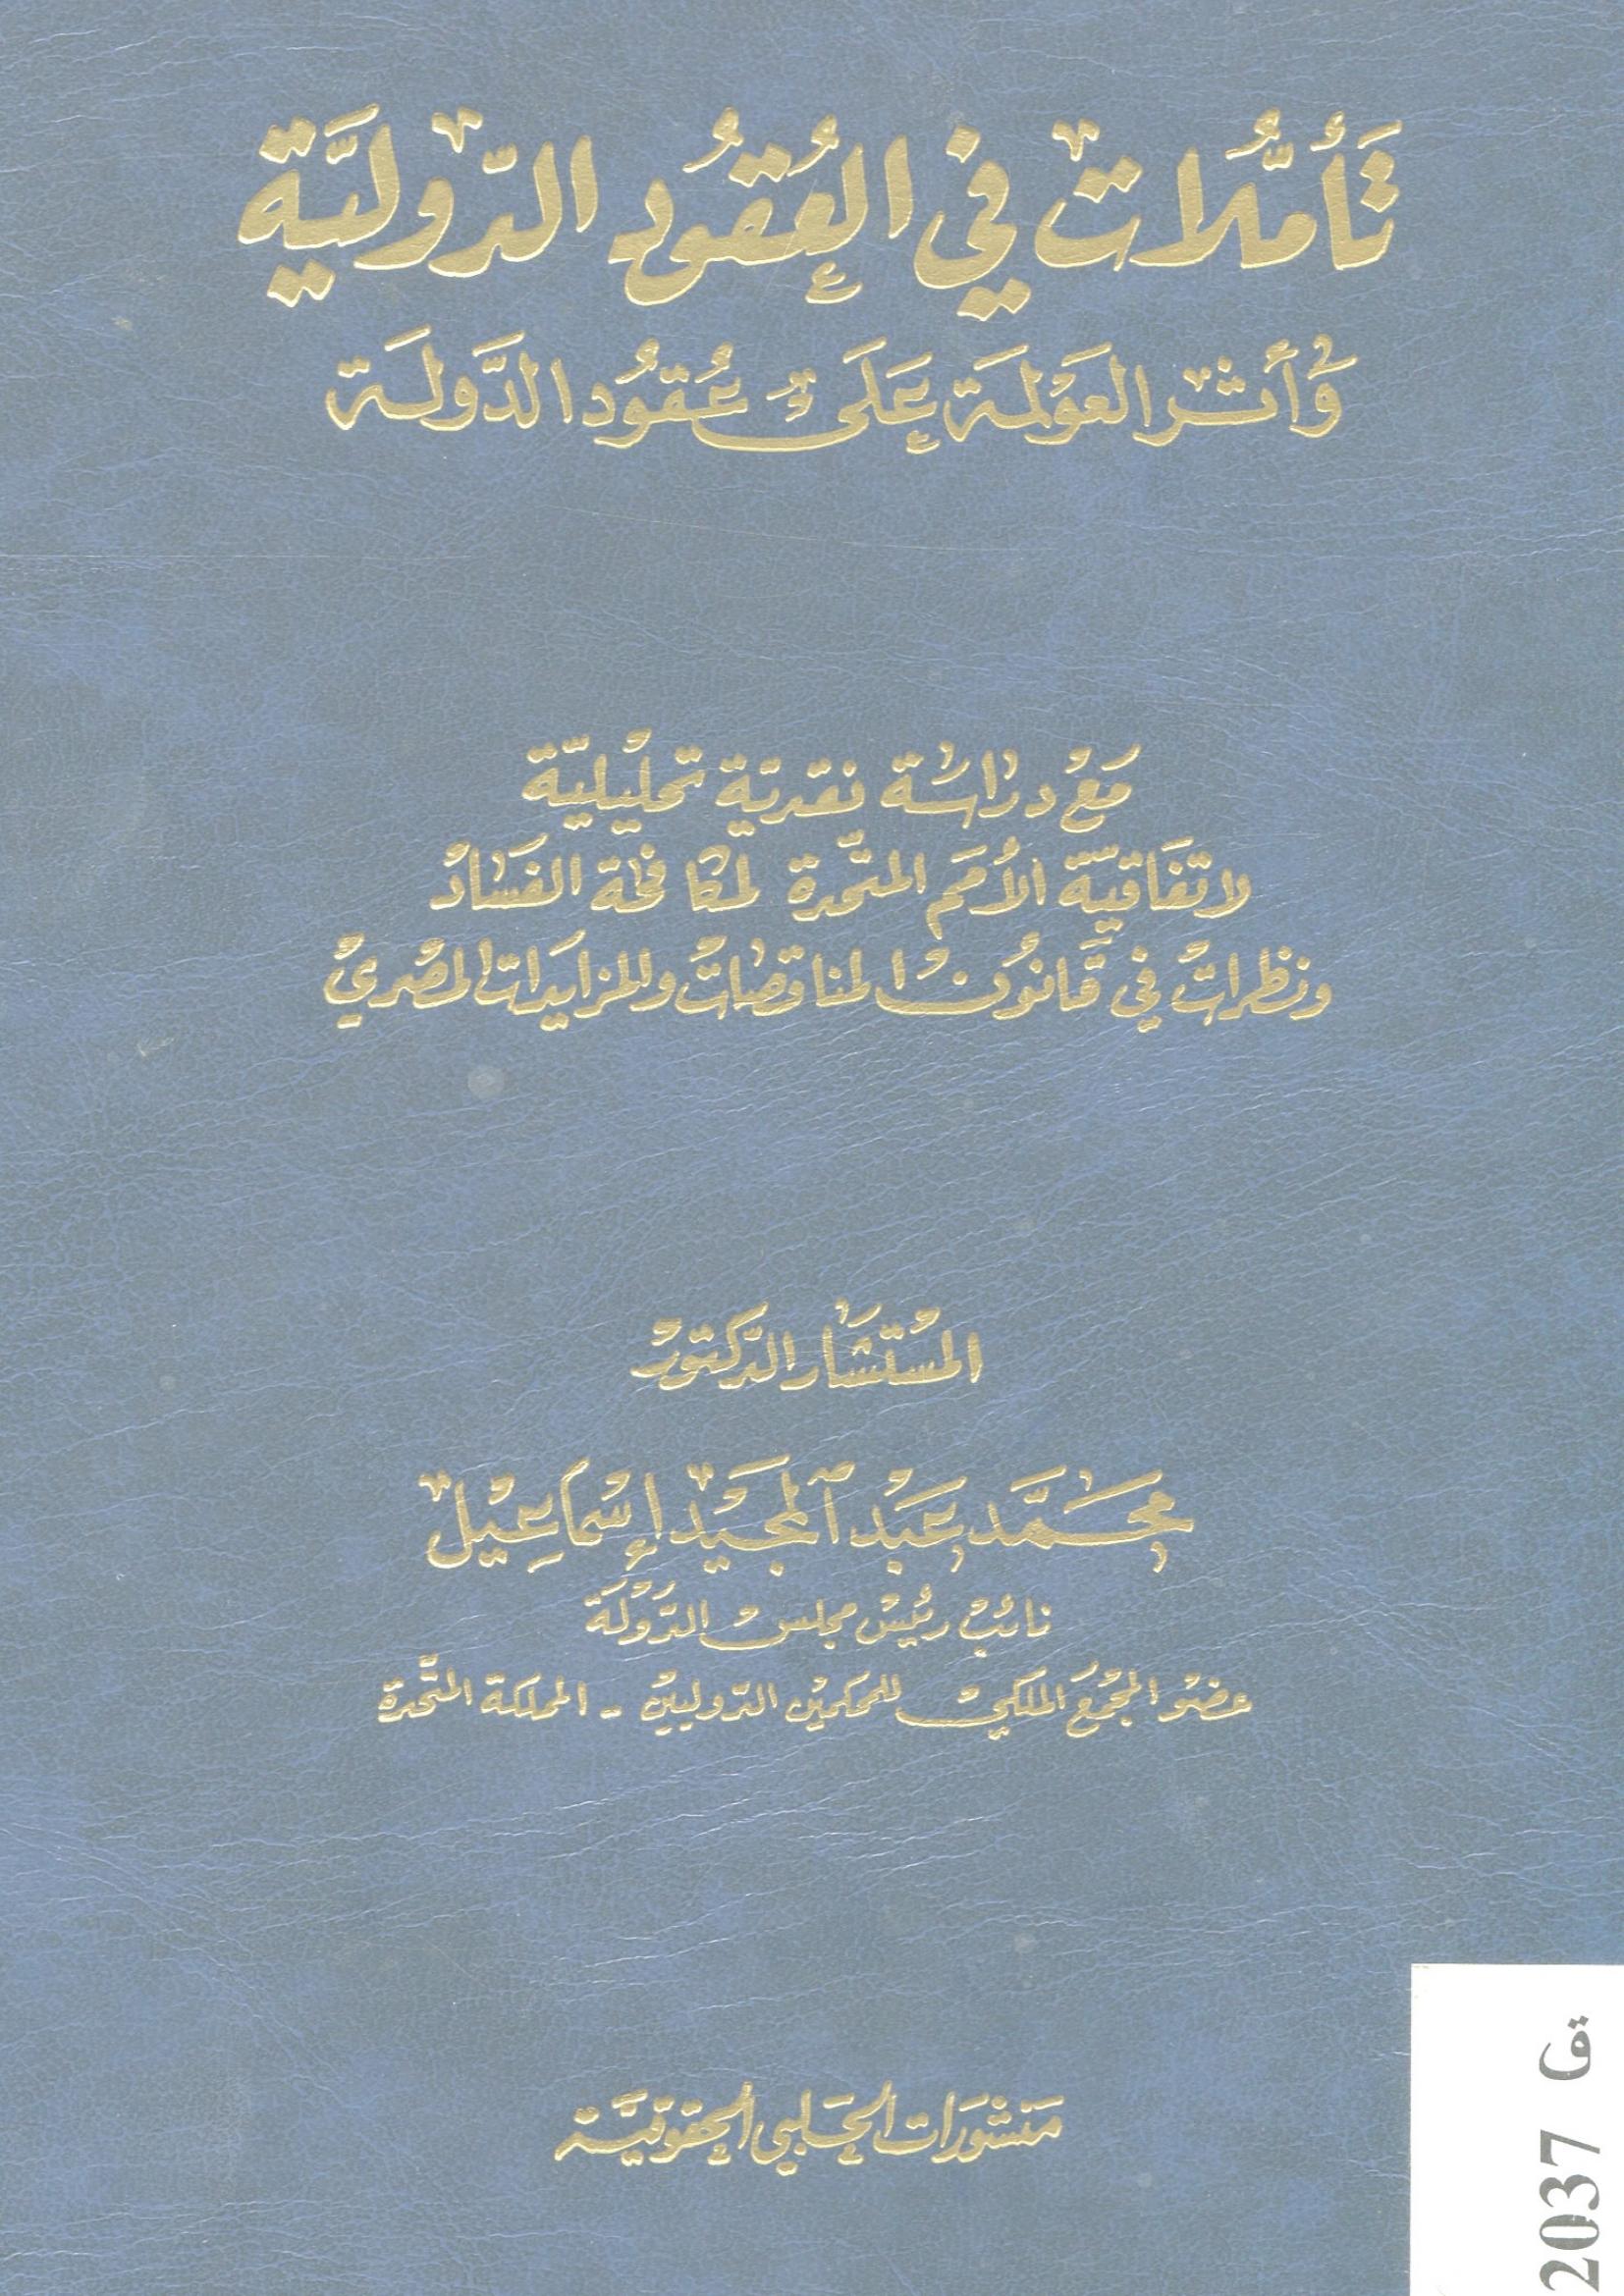 تَأَمُّلات في العُقُود الدّوليَّة
وَأَثر العَولمَة عَلى عُقُود الدَّولَة
مَعْ دراسَة نقديَّة تحليليّة
لاتفَاقيَّة الأمَم المتّحدة لمكافحة الفسَادْ
ونظرات في قَانوُنْ المناقصَاتْ والمزايدَات المصْريْ
المسْتشَار الدّكتورْ
محمَّد عَبْد المجَيْد إسْماعيْل
نائبْ رئيسْ مجلسْ الدّولَة
عضو المجْمَع الملَكيْ للمحكميْن الدّولييْن - المملكة المتّحدة
مَنشورَات الحَلبي الحقوقيَّة
2037 ق